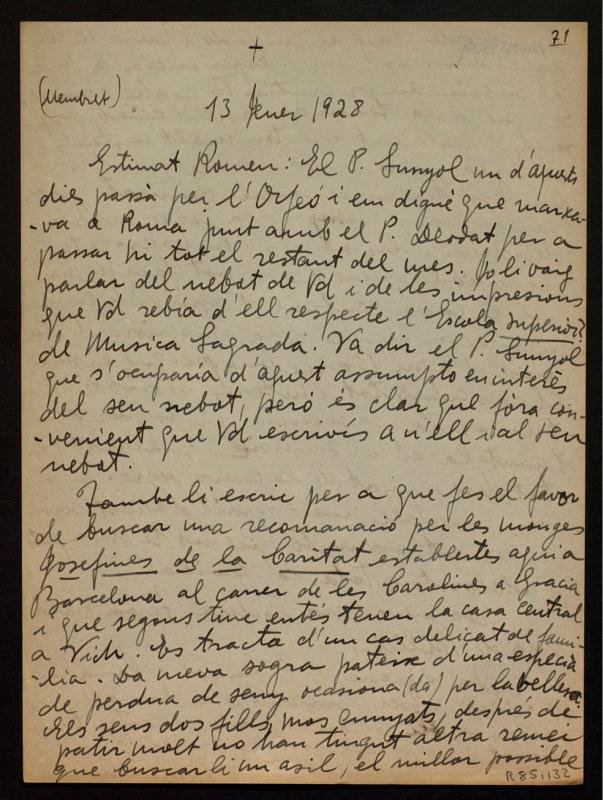 71
+
(Membret)
13 Jener 1928
Estimat Romeu: El P. Sunyol un d'aquests
dies passà per l'Orfeó i em digué que marxa-
-va a Roma junt amb el P. Deodat per a
passar hi tot el restant del mes. Jo li vaig
parlar del nebot de Vd i de les impresions
que Vd rebía d'ell respecte l'Escola Superior
de Musica Sagrada. Va dir el P. Sunyol
que s'ocuparía d'aquest assumpto en interés
del seu nebot, peró és clar que fóra con-
-venient que Vd escrivís a n'ell i al seu
nebot.
Tambe li escric per a que fes el favor
de buscar una recomanació per les monges
Josefines de la Caritat establertes aquí a
Barcelona al carrer de les Carolines a Gracia
i que segons tinc entés tenen la casa central
a Vich. Es tracta d'un cas delicat de fami-
-lia. La meva sogra pateix d'una especia
de perdua de seny ocasiona(da) per la bellesa.
Els seus dos fills, mos cunyats, després de
patir molt no han tingut altra remei
que buscar li un asil, el millor possible
R 85,132